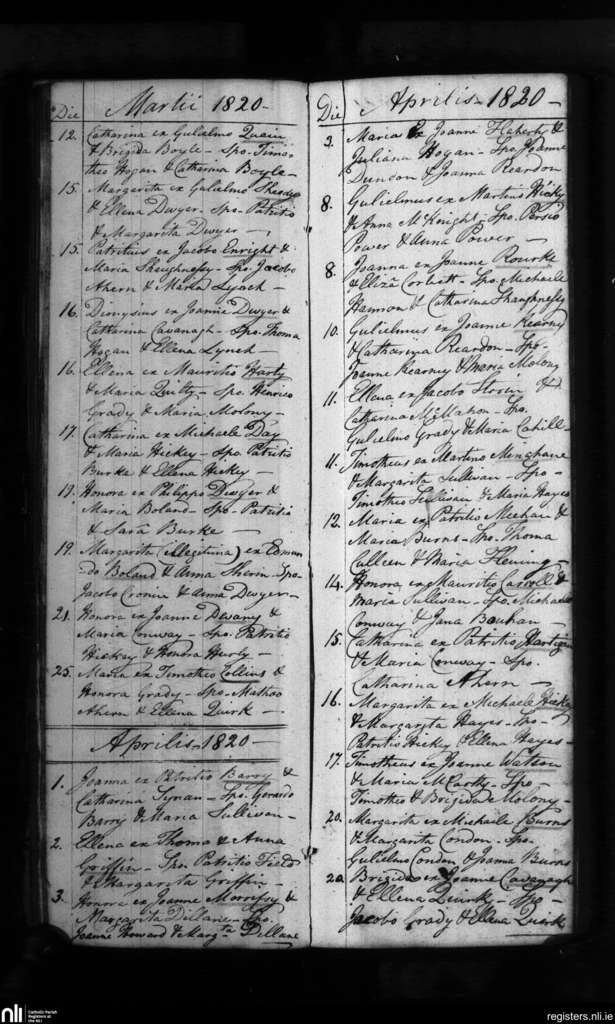 Die Martii 1820
12. Catharina ex Gulielmo Quain
& Brigida Boyle - Spo. Timo-
theo Hogan & Catharina Boyle -
15. Margarita ex Gulielmo
& Ellena Dwyer - Spo. Patritio
& Margarita Dwyer -
15. Patritius ex Jacobo Enright &
Maria Shaughnessy - Spo. Jacobo
Ahern & Maria Lynch -
16. Dionysius ex Joanne Dwyer &
Catharina Cavanagh - Spo. Thoma
Hogan & Ellena Lynch -
16. Ellena ex Mauritio Harty
& Maria Quilty - Spo. Henrico
Grady & Maria Molony -
17. Catharina ex Michaele Day
& Maria Hickey - Spo. Patritio
Burke & Ellena Hickey -
19. Honora ex Philippo Dwyer &
Maria Boland - Spo. Patritio
& Sara Burke -
19. Margarita (illegitima) ex Edmun
do Boland & Anna Sherin - Spo.
Jacobo Cronin & Anna Dwyer -
21. Honora ex Joanne Devany &
Maria Conway - Spo. Patritio
Hickey & Honora
25. Maria ex Timotheo Collins &
Honora Grady - Spo. Matheo
Ahern & Ellena Quirk -
Aprilis 1820 -
1. Joanna ex Patritio Barry &
Catharina - Spo. Gerardo
Barry & Maria Sullivan -
2. Ellena ex Thoma & Anna
Griffin - Spo. Patritio Field
& Margaryta Griffin -
3. Honora ex Joanne Morrissy &
Margarita Dillane - Spo.
Joanne Howard & Margta Dillane
Die Aprilis - 1820 -
3. Maria Ex Joanne Flaherty &
Juliana Hogan - Spo. Joanne
Dundon & Joanna Reardon
8. Gulielmus ex Martino
& Anna McKnight - Spo.
Power & Anna Power -
8. Joanna ex Joanne Rourke
& Eliza Corbett - Spo. Michaele
Hannon & Catharina Shaughnessy
10. Gulielmus ex Joanne Kearny
& Catharina Reardon - Spo.
Joanne Kearney & Maria Molony
11. Ellena ex Jacobo Storin &
Catharina McMahon - Spo.
Gulielmo Grady & Maria Cahill -
11. Timotheus ex Martino Minghane
& Margarita Sullivan - Spo -
Timotheo Sullivan & Maria Hayes
12. Maria ex Patritio Meehan &
Maria Burns - Spo. Thoma
Culleen & Maria Fleming -
14. Honora ex Mauritio &
Maria Sullivan - Spo. Michaele
Conway & Jana Bouhan -
15. Catharina ex Patritio Hartigan
& Maria Conway - Spo.
Catharina Ahern -
16. Margarita ex Michaele Hickey
& Margaryta Hayes - Spo -
Patritio Hickey & Ellena Hayes -
17. Timotheus ex Joanne Watson
& Maria McCarthy - Spo -
Timotheo & Brigida Molony -
20. Margarita ex Michaele Burns
& Margarita Condon - Spo.
Gulielmo Condon & Joanna Burns
20. Brigida ex Joanne Cavanagh
& Ellena Quirk - Spo -
Jacobo Grady & Ellena Quirk
nli Catholic Parish
Registers at
the NLI
registers.nli.ie